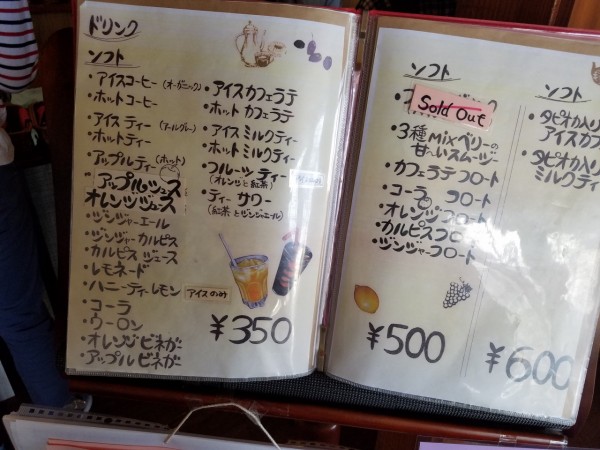 ドリンク
ソフト
・アイスコーヒー (オーガニック)
・ホットコーヒー
・アイスティー (アールグレー)
・ホットティー
・アップルティー (ホット)
アップルジュース
オレンジジュース
・ジンジャーエール
・ジンジャーカルピス
・カルピスジュース
・レモネード
・ハニーティーレモン アイスのみ
・コーラ
・ウーロン
・オレンジビネガー
・アップルビネガー
・アイスカフェラテ
・ホットカフェラテ
・アイスミルクティー
・ホットミルクティー
・フルーツティー
(オレンジと紅茶)
・ティーサワー
(紅茶とジンジャエール)
¥350
ソフト
Sold Out
・3種Mixベリーの
甘〜いスムージー
・カフェラテフロート
・コーラフロート
・オレンジフロート
・カルピスフロート
・ジンジャーフロート
¥500
ソフト
・タピオカ入り
アイスカフ
・タピオカ入り
ミルクティ
¥600